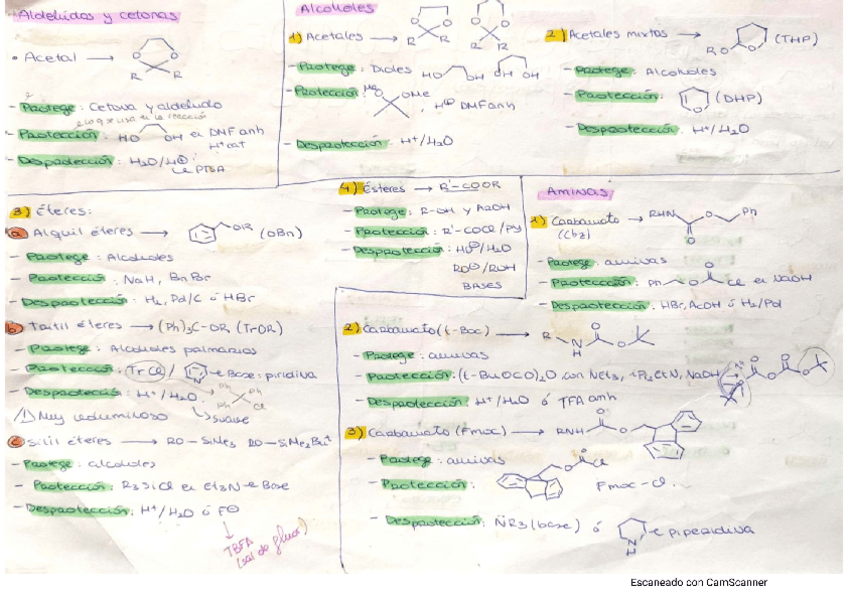 Aldehidos y cetonas
• Acetal → O O R R
- Protege: Cetona y aldehido
- Protección: HO OH en DMF anh
H⁺ cat
- Desprotección: H₂O/H⊕
PTSA
Alcoholes
1) Acetales → O O R R
- Protege: Dioles HO OH OH OH
- Protección: MeO OMe, H⊕ DMF anh
- Desprotección: H⁺/H₂O
2) Acetales mixtos → RO O (THP)
- Protege: Alcoholes
- Protección: O (DHP)
- Desprotección: H⁺/H₂O
3) Éteres:
a) Alquil éteres → OR (OBn)
- Protege: Alcoholes
- Protección: NaH, BnBr
- Desprotección: H₂, Pd/C ó HBr
b) Tritil éteres → (Ph)₃C-OR (TrOR)
- Protege: Alcoholes primarios
- Protección: TrCl / N Base: piridina
- Desprotección: H⁺/H₂O
Ph Ph Ph Cl
⚠ Muy voluminoso
suave
c) Silil éteres → RO-SiMe₃ RO-SiMe₂Buᵗ
- Protege: alcoholes
- Protección: R₃SiCl en Et₃N Base
- Desprotección: H⁺/H₂O ó F⊖
TBFA
(sal de fluor)
4) Ésteres → R'-COOR
- Protege: R-OH y ArOH
- Protección: R'-COCl/Py
- Desprotección: HO⊖/H₂O
RO⊖/ROH
BASES
Aminas
1) Carbamato → RHN O O Ph
(Cbz)
- Protege: aminas
- Protección: Ph O O Cl en NaOH
- Desprotección: HBr, AcOH ó H₂/Pd
2) Carbamato (t-Boc) → R N H O O
- Protege: aminas
- Protección: (t-BuOCO)₂O con NEt₃, iPr₂EtN, NaOH
- Desprotección: H⁺/H₂O ó TFA anh
3) Carbamato (Fmoc) → RNH O O
- Protege: aminas
- Protección: O O Cl Fmoc-Cl
- Desprotección: NR₃ (base) ó N H piperidina
Escaneado con CamScanner